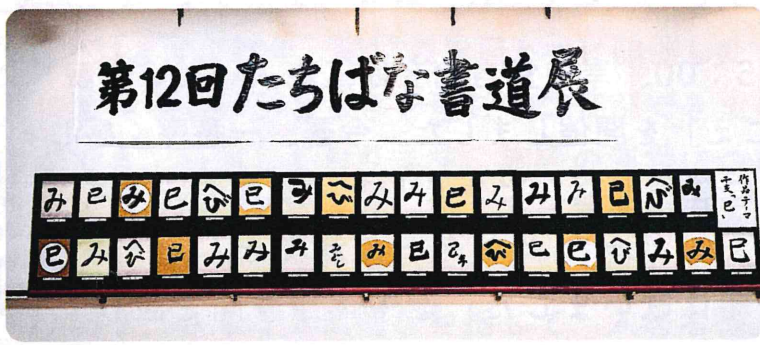 第12回たちばな書道展
み 巳 み 巳 へび 巳 み へび み み 巳 み み み 巳 へび み
作品テーマ
干支「巳」
巳 み へび 巳 み み み み 巳 へび 巳 巳 へび み み 巳